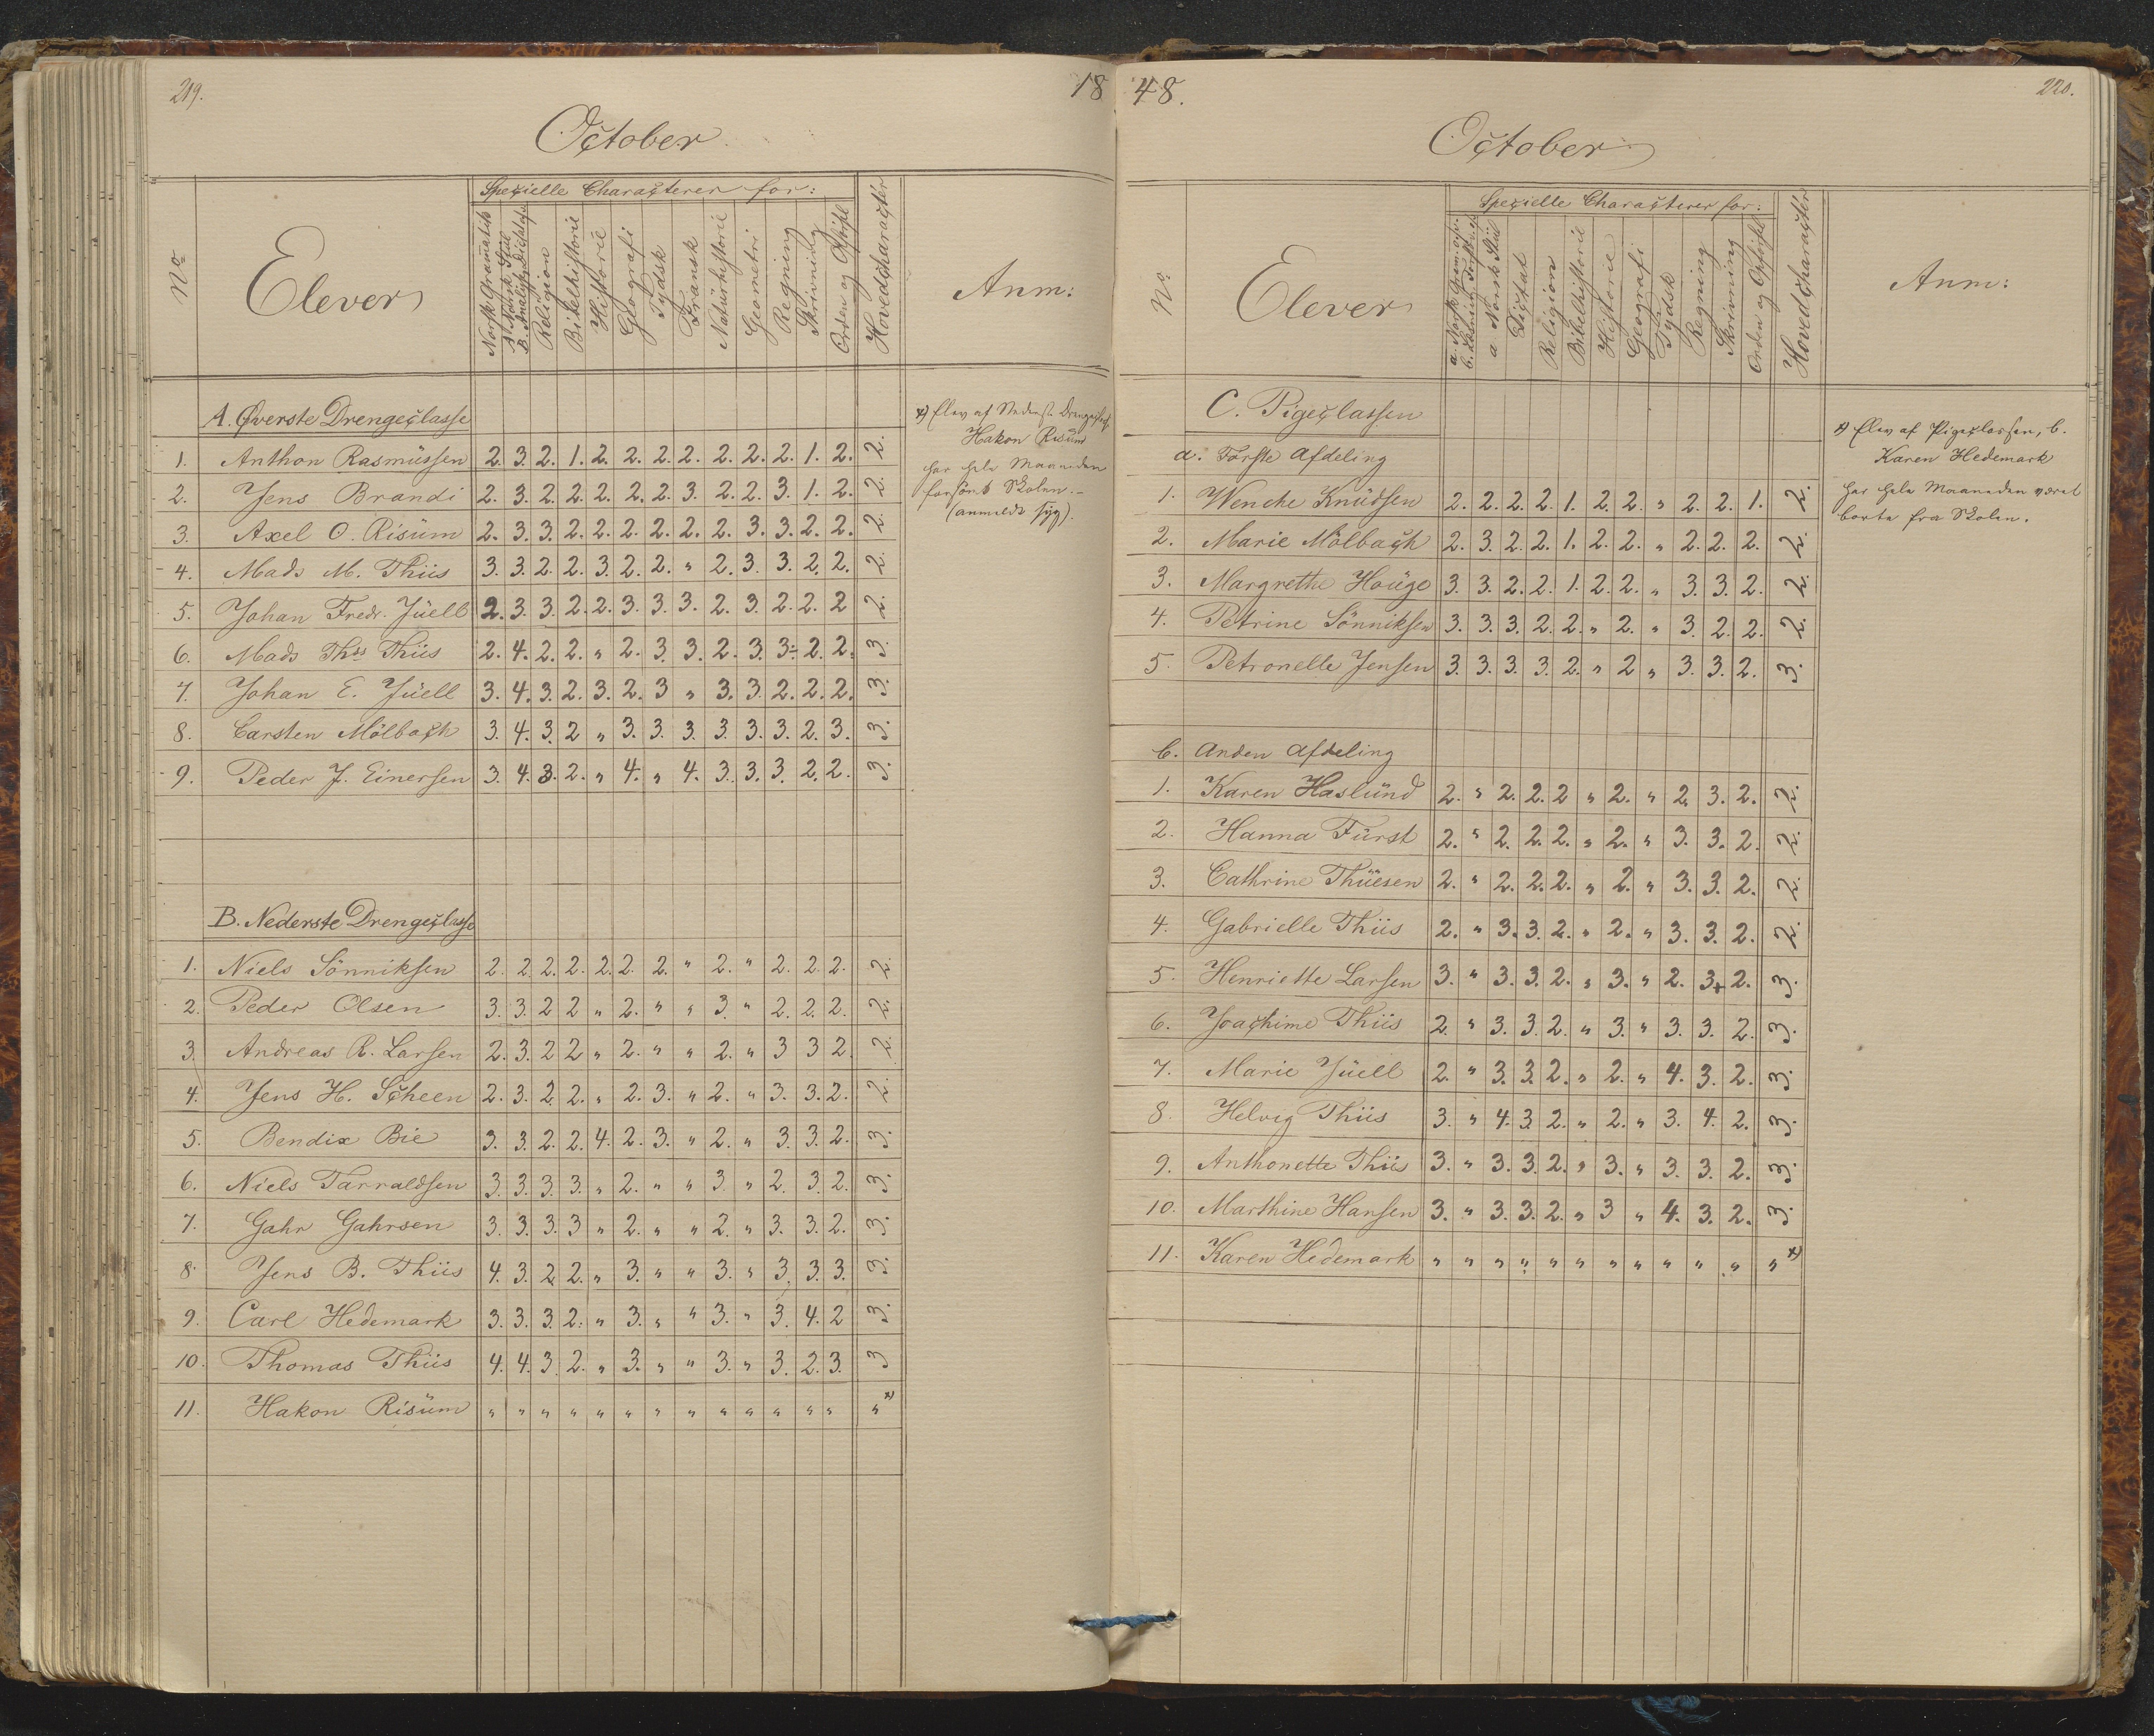 219.
18
October
No
Elever
Specielle Characterer for:
Norsk Gramatik
A. Norsk Stiil
B. Analyse Dictat
Religion
Bibelhistorie
Historie
Geografi
Tydsk
Fransk
Naturhistorie
Geometri
Regning
Skrivning
Orden og Opførsel
Hovedcharacter
Anm:
A. Øverste Drengeclasse
1. Anthon Rasmüssen 2. 3. 2. 1. 2. 2. 2. 2. 2. 2. 2. 1. 2. 2.
2. Jens Brandi 2. 3. 2. 2. 2. 2. 2. 3. 2. 2. 3. 1. 2. 2.
3. Axel O. Risüm 2. 3. 3. 2. 2. 2. 2. 2. 2. 3. 3. 2. 2. 2.
4. Mads M. Thiis 3. 3. 2. 2. 3. 2. 2. " 2. 3. 3. 2. 2. 2.
5. Johan Fredr. Jüell 2. 3. 3. 2. 2. 3. 3. 3. 2. 3. 2. 2. 2 2.
6. Mads Ths Thiis 2. 4. 2. 2. " 2. 3. 3. 2. 3. 3÷ 2. 2. 3.
7. Johan E. Jüell 3. 4. 3. 2. 3. 2. 3 " 3. 3. 2. 2. 2. 3.
8. Carsten Mölbach 3. 4. 3. 2 " 3. 3. 3. 3. 3. 3. 2. 3. 3.
9. Peder J. Einersen 3. 4. 3. 2. " 4. " 4. 3. 3. 3. 2. 2. 3.
x) Elev af Nederst. Drengeclasse
Hakon Risüm
har hele Maaneden
forsömt Skolen.-
(anmeldt syg).
B. Nederste Drengeclasse
1. Niels Sönniksen 2. 2. 2. 2. 2. 2. 2. " 2. " 2. 2. 2. 2.
2. Peder Olsen 3. 3. 2 2 " 2. " " 3. " 2. 2. 2. 2.
3. Andreas R. Larsen 2. 3. 2 2 " 2. " " 2. " 3 3 2. 2.
4. Jens H. Scheen 2. 3. 2. 2. " 2. 3. " 2. " 3. 3. 2. 2.
5. Bendix Bie 3. 3. 2. 2. 4. 2. 3. " 2. " 3. 3. 2. 3.
6. Niels Tarraldsen 3. 3. 3. 3. " 2. " " 3. " 2. 3. 2. 3.
7. Gahr Gahrsen 3. 3. 3. 3 " 2. " " 2. " 3. 3. 2. 3.
8. Jens B. Thiis 4. 3. 2 2. " 3. " " 3. " 3. 3. 3. 3.
9. Carl Hedemark 3. 3. 3. 2. " 3. " " 3. " 3. 4. 2 3.
10. Thomas Thiis 4. 4. 3. 2. " 3. " " 3. " 3. 2. 3. 3
11. Hakon Risüm " " " " " " " " " " " " " " x)
48.
220.
October
No
Elever
Specielle Characterer for:
a Norsk Stiil
Dictat
Religion
Bibelhistorie
Historie
Geografi
Tydsk
Regning
Skrivning
Orden og Opførsel
Hovedcharacter
Anm:
C. Pigeclassen
a. Første Afdeling
1. Wenche Knüdsen 2. 2. 2. 2. 1. 2. 2. " 2. 2. 1. 2.
2. Marie Mölbach 2. 3. 2. 2. 1. 2. 2. " 2. 2. 2. 2.
3. Margrethe Houge 3. 3. 2. 2. 1. 2. 2. " 3. 3. 2. 2.
4. Petrine Sönniksen 3. 3. 3. 2. 2. " 2. " 3. 2. 2. 2.
5. Petronelle Jensen 3. 3. 3. 3. 2. " 2 " 3. 3. 2. 3.
x) Elev af Pigeclassen, b.
Karen Hedemark
har hele Maaneden været
borte fra Skolen.
b. Anden Afdeling
1. Karen Haslünd 2. " 2. 2. 2 " 2. " 2. 3. 2. 2.
2. Hanna Fürst 2. " 2. 2. 2. " 2. " 3. 3. 2. 2.
3. Cathrine Thüesen 2. " 2. 2. 2. " 2. " 3. 3. 2. 2.
4. Gabrielle Thiis 2. " 3. 3. 2. " 2. " 3. 3. 2. 2.
5. Henriette Larsen 3. " 3. 3. 2. " 3. " 2. 3+ 2. 3.
6. Joachime Thiis 2. " 3. 3. 2. " 3. " 3. 3. 2. 3.
7. Marie Jüell 2. " 3. 3. 2. " 2. " 4. 3. 2. 3.
8. Helvig Thiis 3. " 4. 3. 2. " 2. " 3. 4. 2. 3.
9. Anthonette Thiis 3. " 3. 3. 2. " 3. " 3. 3. 2. 3.
10. Marthine Hansen 3. " 3. 3. 2. " 3 " 4. 3. 2. 3.
11. Karen Hedemark " " " " " " " " " " " " x)